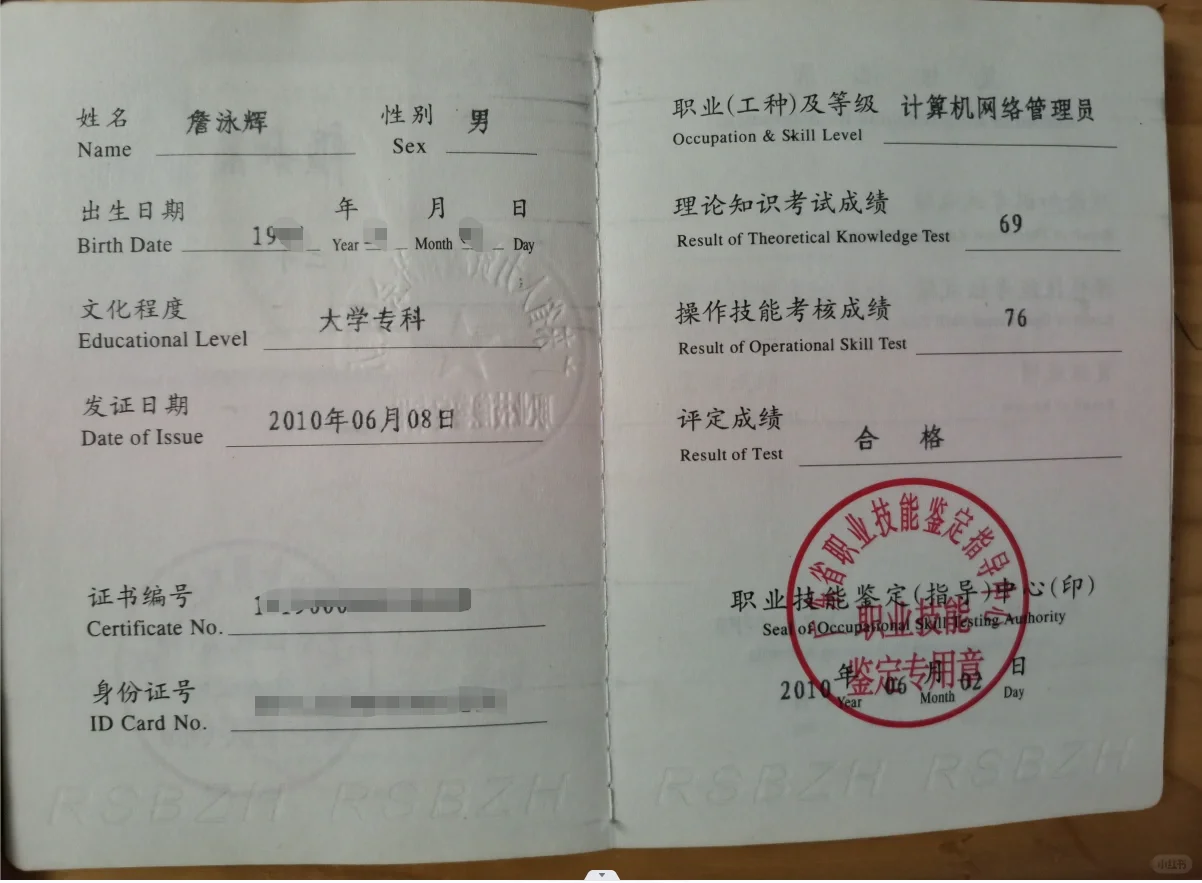 姓名 詹泳辉 性别 男
Name Sex
出生日期 年 月 日
Birth Date 19 Year Month Day
文化程度 大学专科
Educational Level
发证日期 2010年06月08日
Date of Issue
证书编号
Certificate No.
身份证号
ID Card No.
RSBZH RSBZH
职业(工种)及等级 计算机网络管理员
Occupation & Skill Level
理论知识考试成绩 69
Result of Theoretical Knowledge Test
操作技能考核成绩 76
Result of Operational Skill Test
评定成绩 合格
Result of Test
省职业技能鉴定指导中心
职业技能鉴定(指导)中心(印)
Seal of Occupational Skill Testing Authority
职业技能
鉴定专用章
2010 年 06 月 02 日
Year Month Day
RSBZH RSBZH
小红书